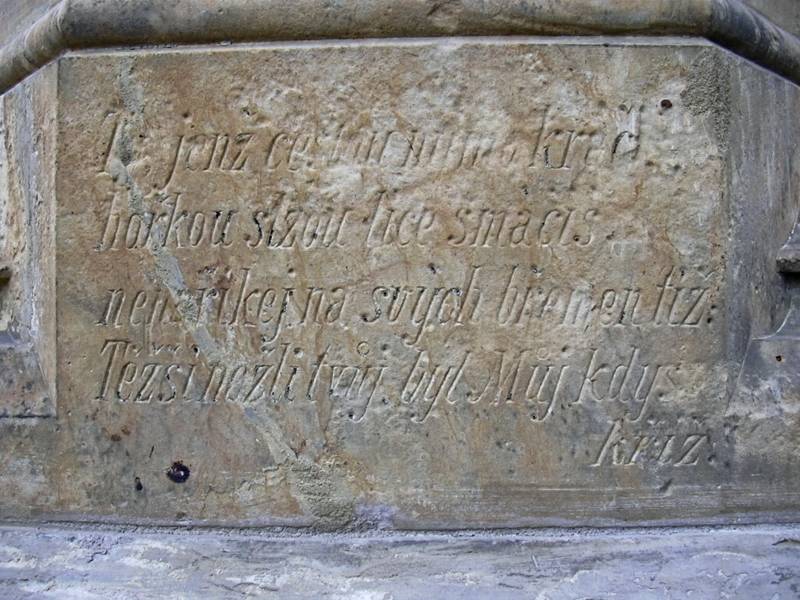 Ty jenž cestou mimo kráčíš
hořkou slzou líce smáčíš
nenaříkej na svých břemen tíž.
Těžší nežli tvůj, byl Můj kdys
kříž.